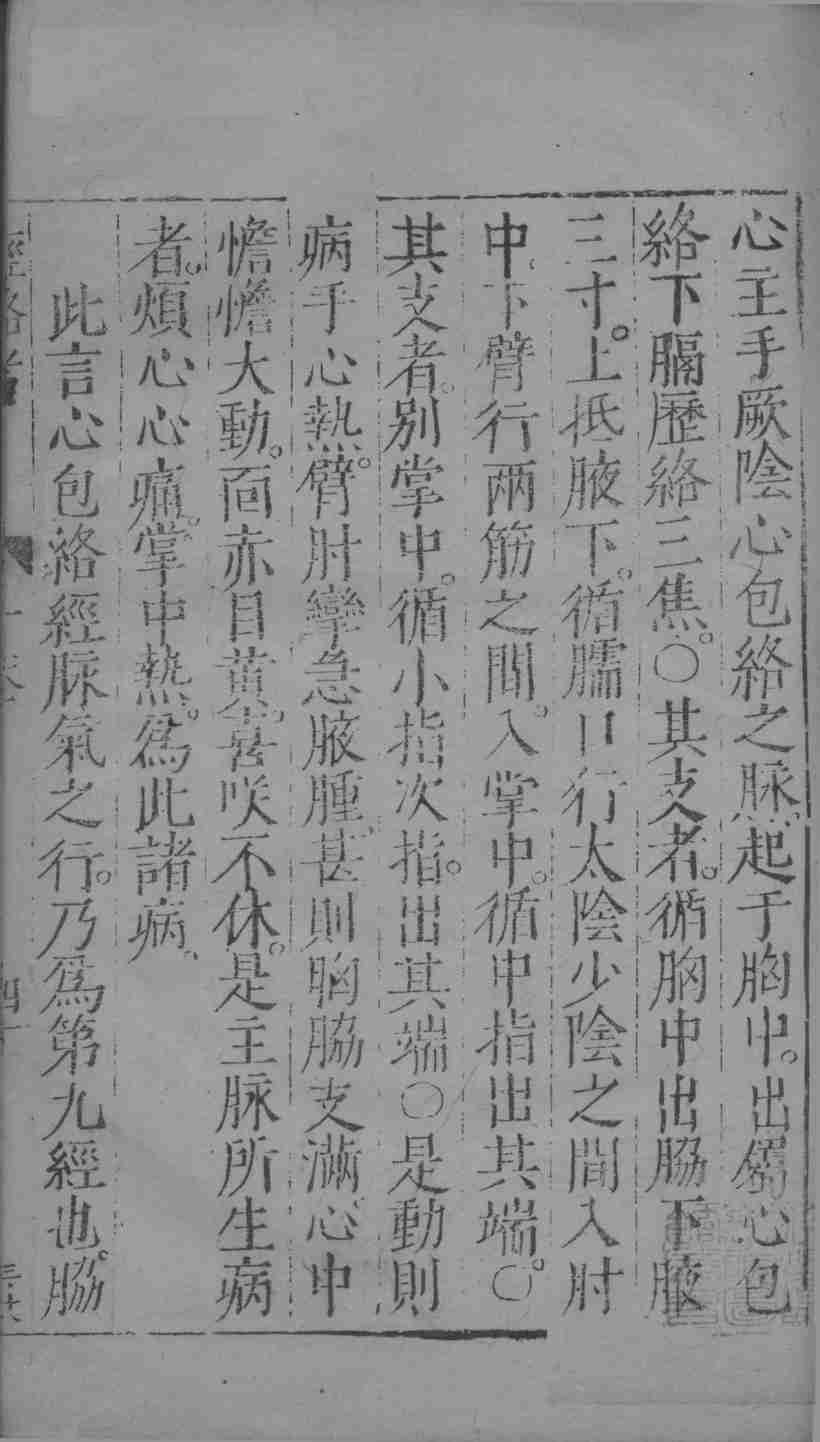 心主手厥陰心包絡之脉、起于胸中。出屬心包
絡下膈歷絡三焦。○其支者。循胸中出脇下腋
三寸。上抵腋下。循臑內行太陰少陰之間入肘
中。下臂行兩筋之間。入掌中。循中指出其端。○
其支者。別掌中。循小指次指。出其端○是動則
病手心熱。臂肘攣急腋腫、甚則胸脇支滿心中
憺憺大動。面赤目黃。喜咲不休。是主脉所生病
者。煩心心痛。掌中熱。爲此諸病、
此言心包絡經脉氣之行。乃爲第九經也。脇
經絡考